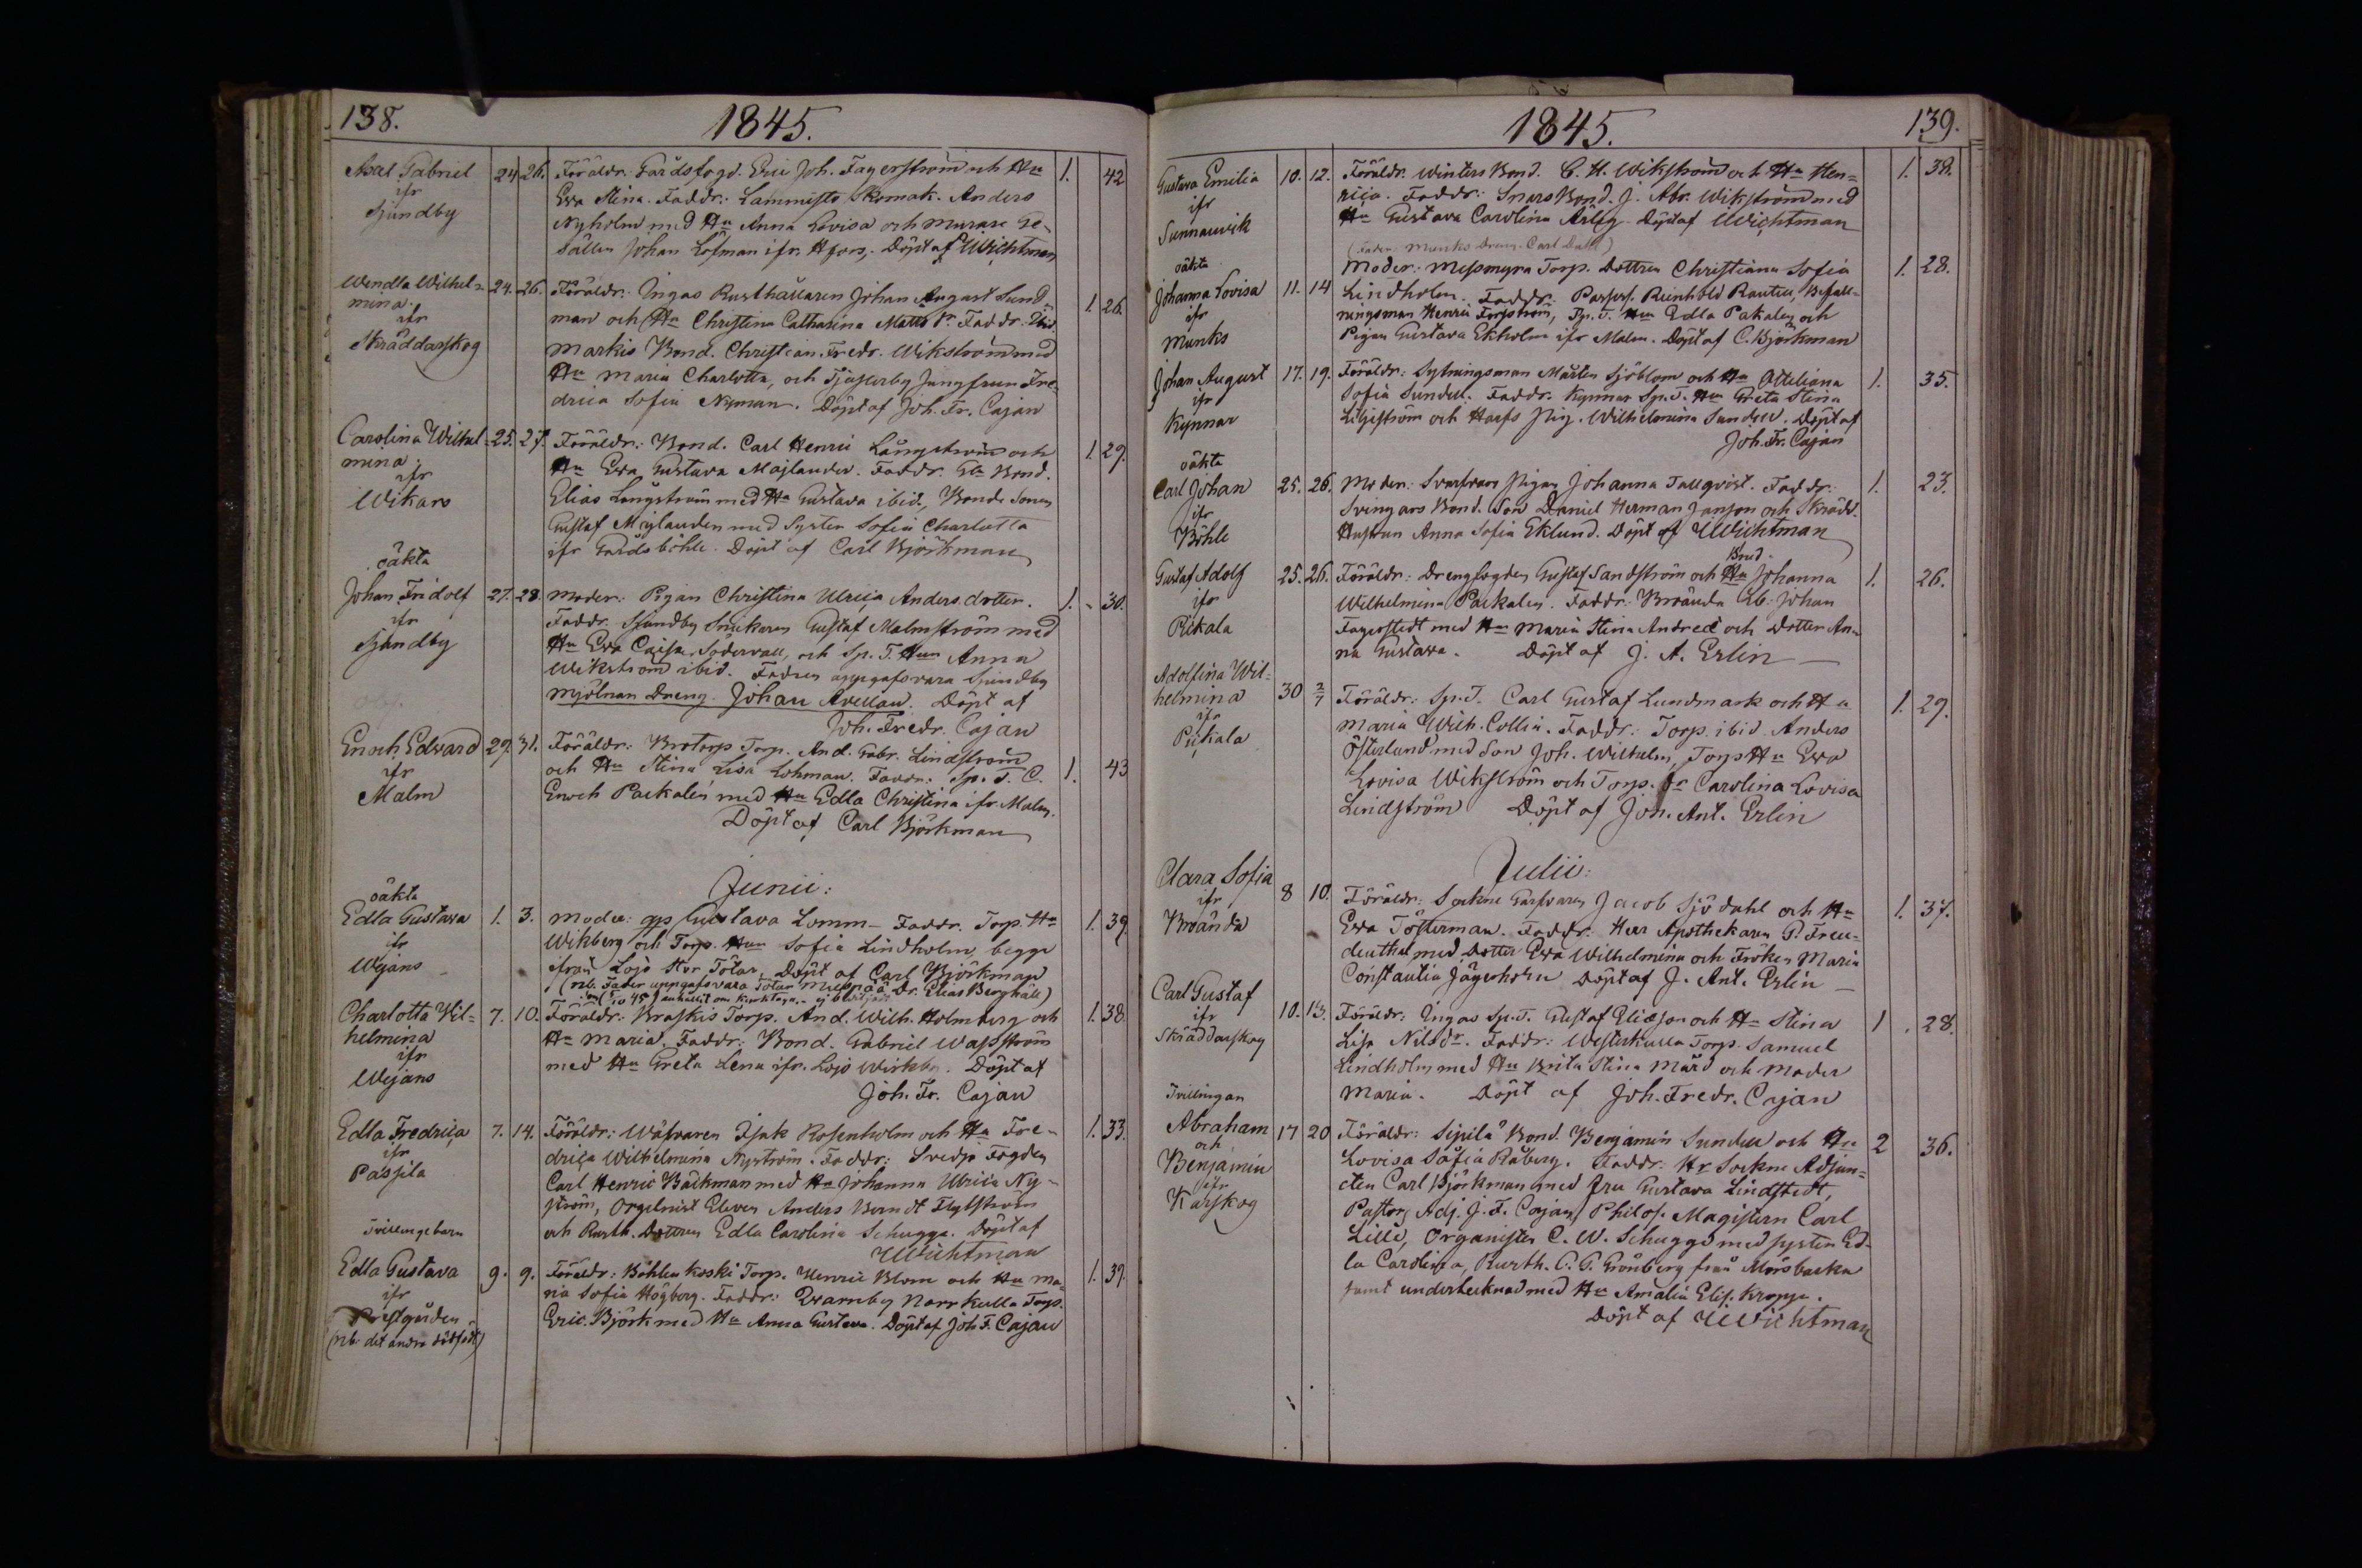 138.
1845.
Axel Gabriel
ifr
Sjundby
24 26.
Föräldr: Gårdsfogd. Eric Joh. Fagerström och Hu
Eva Stina. Faddr: Lammisto Skomak. Anders
Nyholm med Hu Anna Lovisa och Murare Ge-
sällen Johan Löfman ifr. Hfors. Döpt af Wichtman
1. 42
Wendla Wilhel-
mina.
ifr
Skräddarskog
24. 26.
Föräldr: Ingas Rusthållaren Johan August Sund-
man och Hu Christina Catharina Matts Dr. Faddr. Ibid.
Markis Bond. Christian Fredr. Wikström med
Hu Maria Charlotta, och Jungfrun Fre-
drica Sofia Nyman. Döpt af Joh. Fr. Cajan
1. 26.
Carolina Wilhel-
mina.
ifr
Wikars
25. 27.
Föräldr: Bond. Carl Henric Långström och
Hu Eva Gustava Majlander. Faddr. Bond.
Elias Långström med Hu Gustava ibid., Bonde Sonen
Gustaf Majlander med Syster Sofia Charlotta
ifr Gårdsböhle. Döpt af Carl Björkman
1. 29.
oäkta
Johan Fridolf
ifr
Sjundby
27. 28.
Moder: Pigan Christina Ulrica Anders dotter.
Faddr. Sjundby Snickaren Gustaf Malmström med
Hu Eva Caisa Södervall, och Sp. T. Hun Anna
Wikström ibid. Fadren uppgafs vara Sjundby
Mjölnar Dreng. Johan Avellan. Döpt af
Joh. Fredr. Cajan
1. 30.
Enoch Edvard
ifr
Malm
29. 31.
Föräldr: Brotorp Torp. And. Gabr. Lindström
och Hu Stina Lisa Lohman. Faddr: Sp. T. C.
Enoch Packalén med Hu Edla Christina ifr. Malm.
Döpt af Carl Björkman
1. 43
Junii:
oäkta
Edla Gustava
ifr
Wejans
1. 3.
Moder: Gustava Lomm- Faddr. Torp. Hu
Wikberg och Torp. Hun Sofia Lindholm, begge
ifrån Lojo Stor Tötar. Döpt af Carl Björkman
(Nb. Fader uppgafs vara Tötar Dr. Elias Berghäll)
1. 39
Charlotta Wil-
helmina
ifr
Wejans
7. 10.
Föräldr: Braskis Torp. And. Wilh. Holmberg och
Hu Maria, Faddr: Bond. Gabriel Wassström
med Hu Greta Lena ifr. Lojo Wirkby. Döpt af
Joh. Fr. Cajan
1. 38
Edla Fredrica
ifr
Passila
7. 14.
Föräldr: Wäfvaren Isak Rosenholm och Hu Fre-
drica Wilhelmina Nyström. Faddr: Svedja Fogden
Carl Henric Bäckman med Hu Johanna Ulrica Ny-
ström, Orgelnist Eleven Anders Berndt Flyktström
och Rusth. Dottren Edla Carolina Schugge. Döpt af
Wichtman
1. 33.
Tvillingebarn
Edla Gustava
ifr
Prestgården
(Nb: det andra dödfödt)
9. 9.
Föräldr: Böhlen koski Torp. Henric Blom och Hu Ma-
ria Sofia Högberg. Faddr: Qvarnby Norrkulla Torp.
Eric Björk med Hu Anna Gustava. Döpt af Joh F. Cajan
1. 39.
1845.
139.
Gustava Emilia
ifr
Sunnanvik
10. 12.
Föräldr. Winters Bond. C. H. Wikström och Hu Hen-
rica. Faddr: Snars Bond. J. Abr. Wikström med
Hu Gustava Carolina Döpt af Wichtman
1. 38.
(Fader: Munks Dreng Carl Dahl)
oäkta
Johanna Lovisa
ifr
Munks
11. 14
Moder: Messmyra Torp. Dottren Christiana Sofia
Lindholm. Faddr: Reinhold Rautell, Befall-
ningsman Henric Forsström, Sp. T. Hun Edla Pakalen och
Pigan Gustava Ekholm ifr Malm. Döpt af C. Björkman
1. 28.
Johan August
ifr
Kynnar
17. 19.
Föräldr: Sytningsman Mårten Sjöblom och Hu Otteliana
Sofia Sundell. Faddr. Kynnar Sp. T. Hu Greta Stina
Liljeström och Harfs Pig. Wilhelmina Sundell. Döpt af
Joh. Fr. Cajan
1. 35.
oäkta
Carl Johan
ifr
Böhle
25. 26.
Moder: Svarfvars Pigan Johanna Tallqvist. Faddr:
Svingars Bond. Son Daniel Herman Janson och Skrädd.
Hustrun Anna Sofia Eklund. Döpt af Wichtman
1. 23.
Gustaf Adolf
ifr
Pikala
25. 26.
Brud.
Föräldr: Drengfogden Gustaf Sandström och Hu Johanna
Wilhelmina Packalen. Faddr: Broända Johan
Fagerstedt med Hu Maria Stina Andreé och Dotter An-
na Gustava. Döpt af J. A. Erlin
1. 26.
Adolfina Wil-
helmina
ifr
Pickala
30 2/7
Föräldr: Sp. T. Carl Gustaf Lundmark och Hu
Maria Wilh. Collin. Faddr: Torp. ibid. Anders
Österlund med Son Joh. Wilhelm, Torp Hu Eva
Lovisa Wikström och Torp. Dr Carolina Lovisa
Lindström Döpt af Joh. Ant. Erlin
1. 29.
Julii:
Clara Sofia
ifr
Broända
8 10.
Föräldr: Sockne Garfvaren Jacob Sjödahl och Hu
Eva Tösterman. Faddr: Herr Apothekaren G. Freu-
denthal med Dotter Eva Wilhelmina och Fröken Maria
Constantia Jägerhorn Döpt af J. Ant. Erlin
1. 37.
Carl Gustaf
ifr
Skräddarskog
10. 13.
Föräldr: Ingas Sp. T. Gustaf Eliasson och Hu Stina
Lisa Nilsdr. Faddr: Westerkulla Torp. Samuel
Lindholm med Hu Brita Stina Mård och Moder
Maria. Döpt af Joh. Fredr. Cajan
1. 28.
Tvillingar
Abraham
och
Benjamin
ifr
Karskog
17 20
Föräldr: Sipilä Bond. Benjamin Sundell och Hu
Lovisa Sofia Råberg. Faddr: Hr Sockne Adjun-
cten Carl Björkman med Fru Gustava Lindstedt,
Pastors Adj. J. F. Cajan, Philos. Magistern Carl
Lille, Organisten C. W. Schugge med syster Ed-
la Carolina, Rusth. C. G. Grönberg från Mörsbacka
samt undertecknad med Hu Amalia Elis. Kropp.
Döpt af Wichtman
2 36.